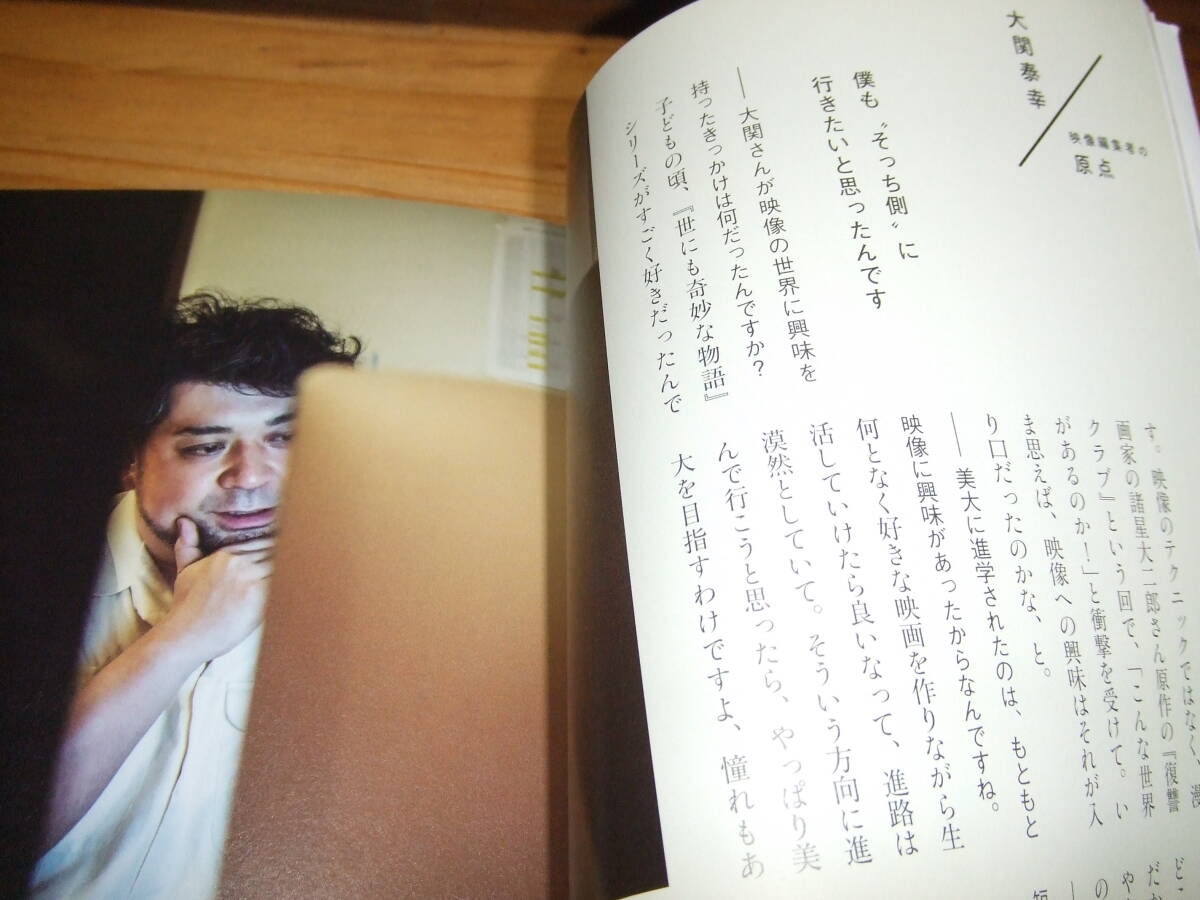 大関泰幸
映像編集者の
原点
僕も〝そっち側〟に
行きたいと思ったんです
―大関さんが映像の世界に興味を
持ったきっかけは何だったんですか?
子どもの頃、『世にも奇妙な物語』
シリーズがすごく好きだったんで
す。映像のテクニックではなく、漫
画家の諸星大二郎さん原作の『復讐
クラブ』という回で、「こんな世界
があるのか!」と衝撃を受けて。い
ま思えば、映像への興味はそれが入
り口だったのかな、と。
―美大に進学されたのは、もともと
映像に興味があったからなんですね。
何となく好きな映画を作りながら生
活していけたら良いなって、進路は
漠然としていて。そういう方向に進
んで行こうと思ったら、やっぱり美
大を目指すわけですよ、憧れもあ